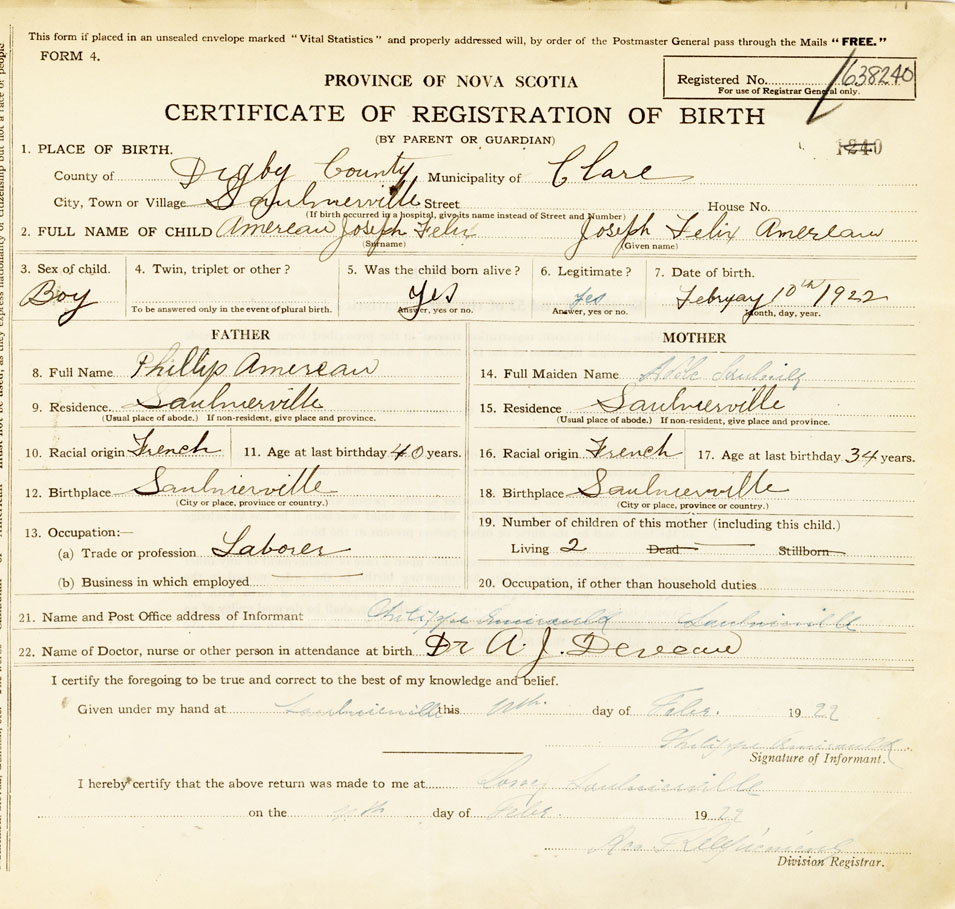 This form if placed in an unsealed envelope marked "Vital Statistics" and properly addressed will, by order of the Postmaster General pass through the Mails "FREE."
FORM 4.
Registered No. 638240
For use of Registrar General only.
PROVINCE OF NOVA SCOTIA
CERTIFICATE OF REGISTRATION OF BIRTH
(BY PARENT OR GUARDIAN)
1240
1. PLACE OF BIRTH.
County of Digby County Municipality of Clare
City, Town or Village Saulnierville Street House No.
(If birth occurred in a hospital, give its name instead of Street and Number)
2. FULL NAME OF CHILD Amereau Joseph Felix Joseph Felix Amereau
(Surname) (Given name)
3. Sex of child. 4. Twin, triplet or other? 5. Was the child born alive? 6. Legitimate? 7. Date of birth.
Boy Yes Yes February 10th 1922
To be answered only in the event of plural birth. Answer, yes or no. Answer, yes or no. Month, day, year.
FATHER
8. Full Name Phillip Amereau
9. Residence. Saulnierville
(Usual place of abode.) If non-resident, give place and province.
10. Racial origin French 11. Age at last birthday 40 years.
12. Birthplace Saulnierville
(City or place, province or country.)
13. Occupation:—
(a) Trade or profession Laborer
(b) Business in which employed
MOTHER
14. Full Maiden Name
15. Residence Saulnierville
(Usual place of abode.) If non-resident, give place and province.
16. Racial origin French 17. Age at last birthday 34 years.
18. Birthplace Saulnierville
(City or place, province or country.)
19. Number of children of this mother (including this child.)
Living 2 Dead Stillborn
20. Occupation, if other than household duties
21. Name and Post Office address of Informant Philippe Saulnierville
22. Name of Doctor, nurse or other person in attendance at birth Dr A. J. Deveau
I certify the foregoing to be true and correct to the best of my knowledge and belief.
Given under my hand at Saulnierville this day of Febr. 1922
Philippe
Signature of Informant.
I hereby certify that the above return was made to me at Saulnierville
on the day of Febr. 1922
Division Registrar.